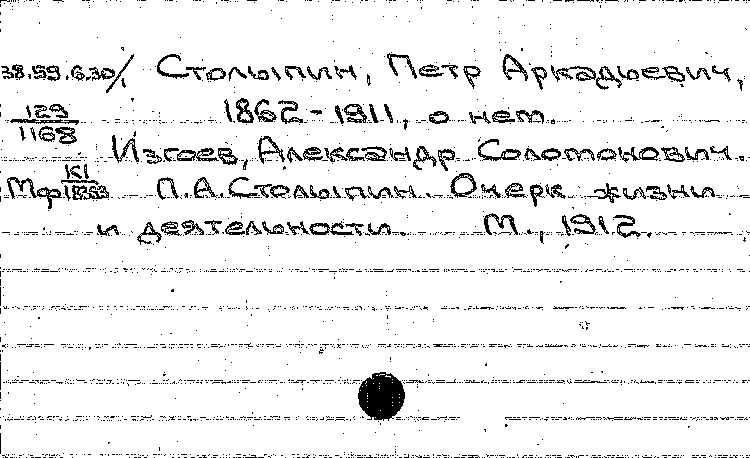 38.59.6.30/ Столыпин, Петр Аркадьевич,
129
1168
1862-1911, о нем.
Изгоев, Александр Соломонович.
Мф К1
18263
П.А.Столыпин. Очерк жизни
и деятельности. М., 1912.